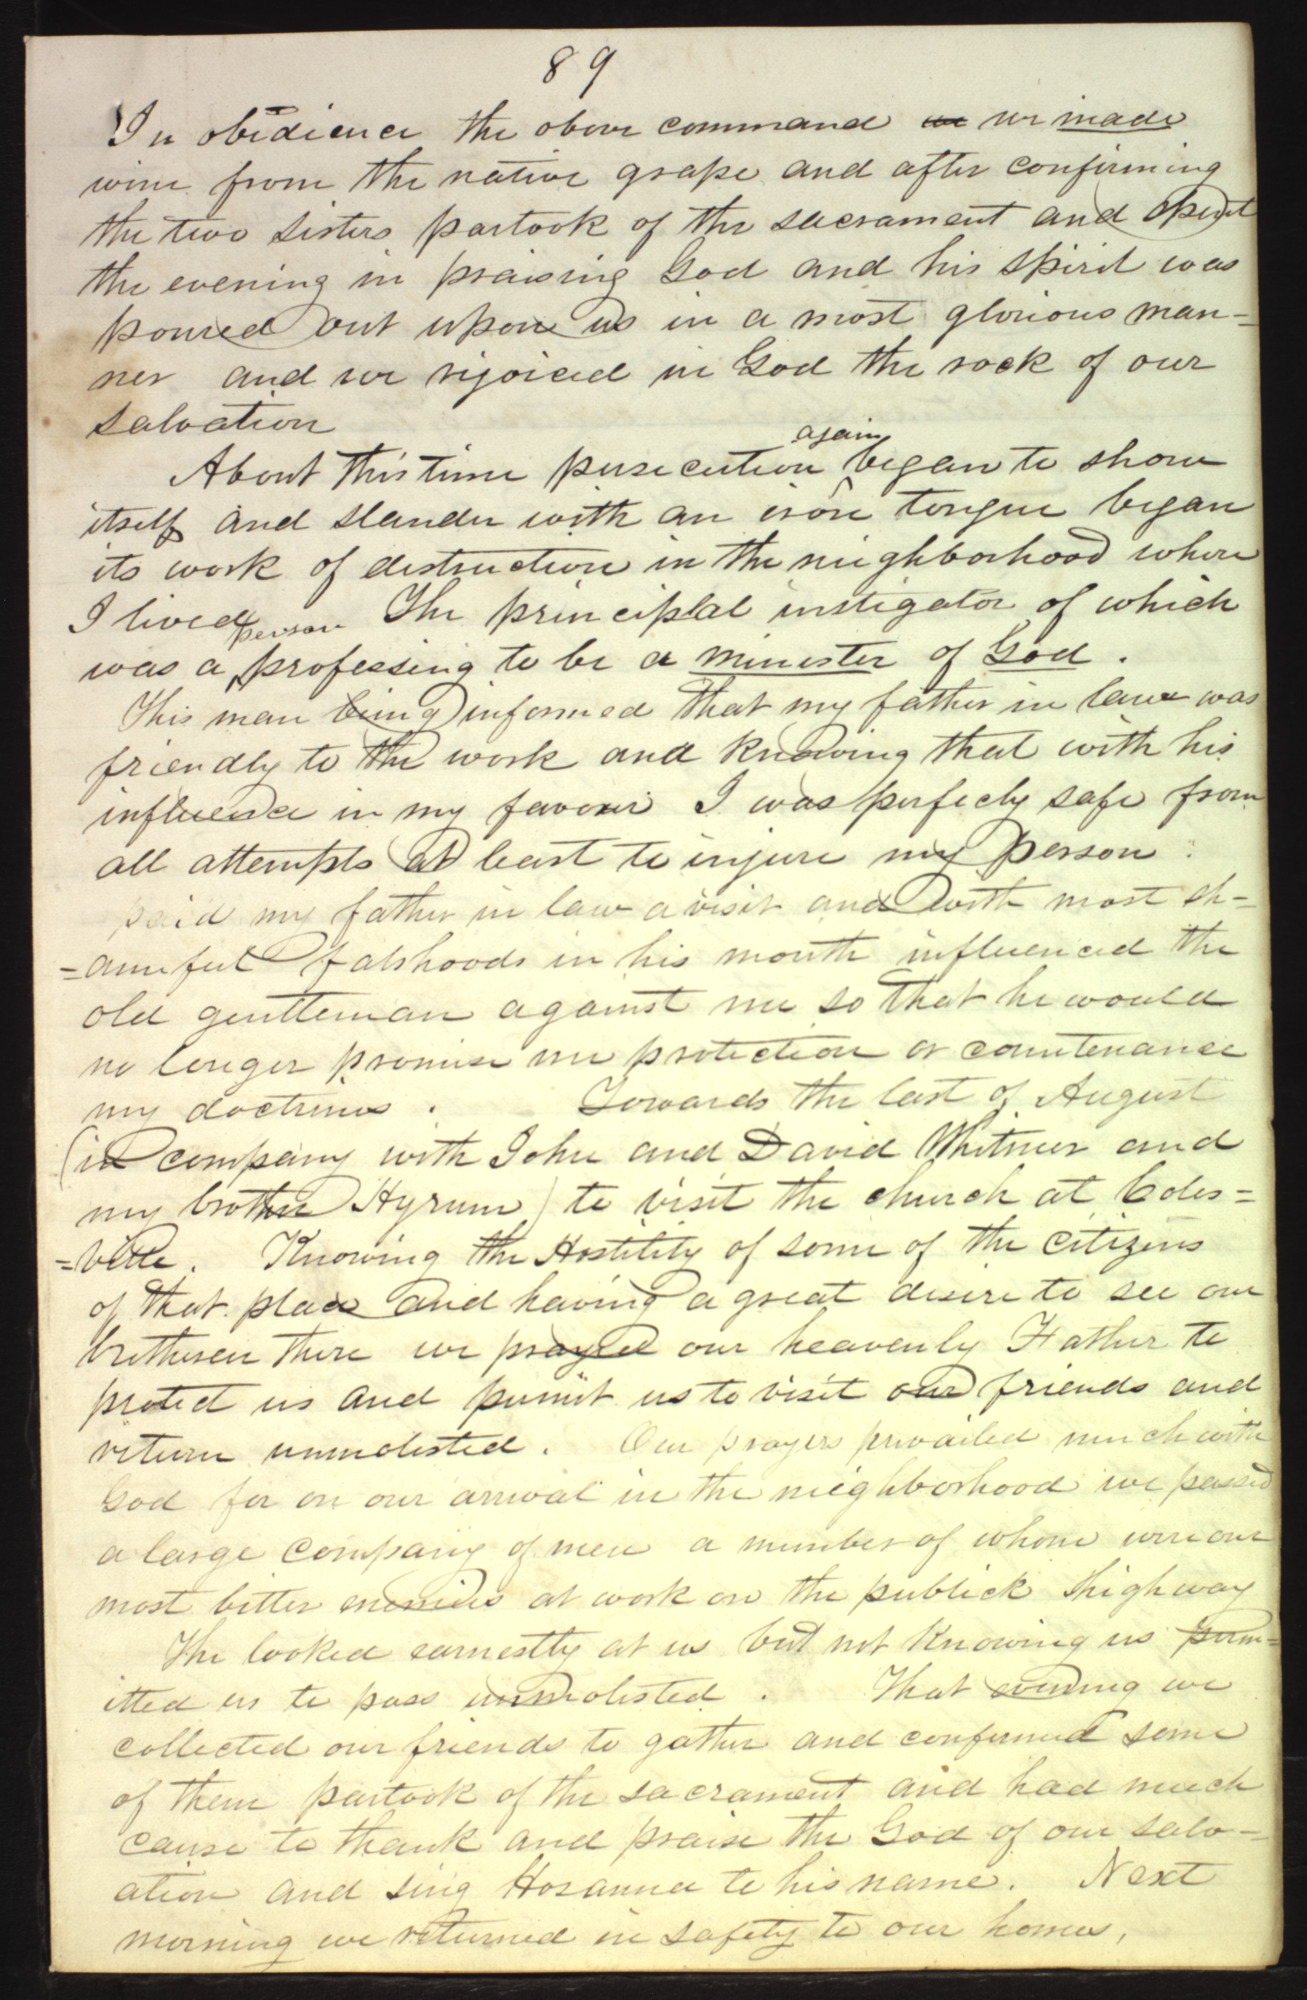 89
In obedience the above command we we made
wine from the native grape and after confirming
the two sisters partook of the sacrament and spent
the evening in praising God and his spirit was
poured out upon us in a most glorious man-
ner and we rejoiced in God the rock of our
salvation
About this time persecution again began to show
itself and slander with an iron tongue began
its work of destruction in the neighborhood where
I lived The principlal instigator of which
was a person professing to be a minister of God.
This man being informed that my father in law was
friendly to the work and knowing that with his
influence in my favour I was perfecly safe from
all attempts at least to injure my person.
paid my father in law a visit and with most sh-
=ameful falshoods in his mouth influenced the
old gentleman against me so that he would
no longer promise me protection or countenance
my doctrines. Towards the last of August
(in company with John and David Whitmer and
my brother Hyrum) to visit the church at Coles=
=ville. Knowing the Hostility of some of the citizens
of that place and having a great desire to see our
bretheren there we prayed our heavenly Father to
protect us and permit us to visit our friends and
return unmolested. Our prayers prevailed much with
God for on our arrival in the neighborhood we passed
a large company of men a number of whom were our
most bitter enemies at work on the publick highway
The looked earnestly at us but not knowing us perm=
itted us to pass unmolested. That evening we
collected our friends to gather and confirmed some
of them partook of the sacrament and had much
cause to thank and praise the God of our salv-
ation and sing Hosanna to his name. Next
morning we returned in safety to our homes,